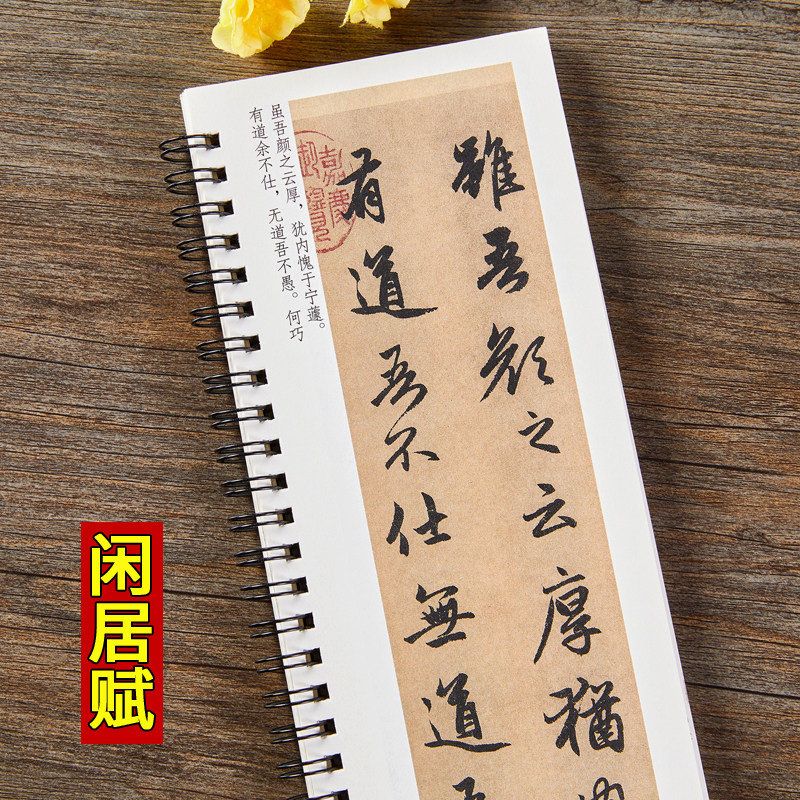 虽吾颜之云厚，犹内愧于宁蘧。
有道余不仕，无道吾不愚。何巧
雖吾顏之云厚猶内
有道吾不仕無道
闲居赋